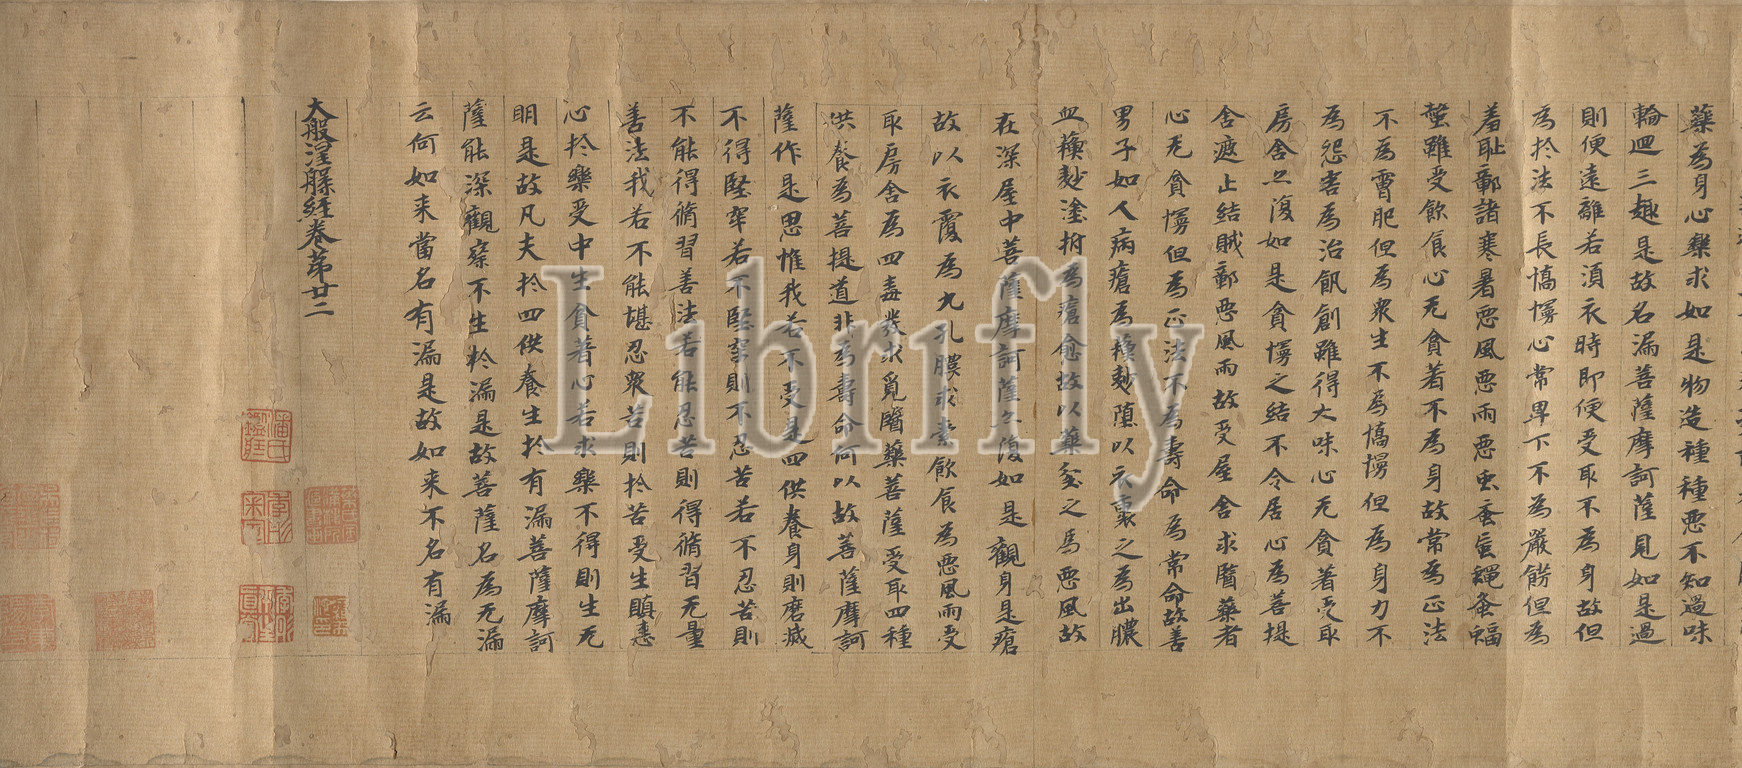 藥為身心樂求如是物造種種惡不知過味
輪迴三趣是故名漏菩薩摩訶薩見如是過
則便遠離若須衣時即便受取不為身故但
為於法不長憍慢心常卑下不為嚴餝但為
羞耻鄣諸寒暑惡風惡雨惡虫蚤虱蝇蚤蝮
螫雖受飲食心无貪著不為身故常為正法
不為膚肥但為衆生不為憍慢但為身力不
為怨害為治飢創雖得大味心无貪著受取
房舍亦復如是貪慢之結不令居心為菩提
舍遮止結賊鄣惡風雨故受屋舍求醫藥者
心无貪慢但為正法不為壽命為常命故善
男子如人病瘡為蘓麨塗以衣裹之為出膿
血蘓麨塗拊為瘡愈故以藥坌之為惡風故
在深屋中菩薩摩訶薩亦復如是觀身是瘡
故以衣覆為九孔膿求索飲食為惡風雨受
取房舍為四毒發求覓醫藥菩薩受取四種
供養為菩提道非為壽命何以故菩薩摩訶
薩作是思惟我若不受是四供養身則磨滅
不得堅牢若不堅牢則不忍苦若不忍苦則
不能得脩習善法若能忍苦則得脩習无量
善法我若不能堪忍衆苦則於苦受生瞋恚
心於樂受中生貪著心若求樂不得則生无
明是故凡夫於四供養生於有漏菩薩摩訶
薩能深觀察不生於漏是故菩薩名為无漏
云何如来當名有漏是故如来不名有漏
大般涅槃經卷第廿二
Librifly